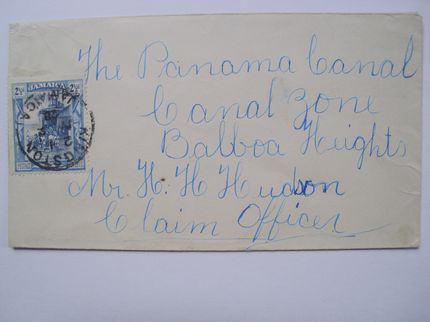 The Panama Canal
Canal Zone
Balboa Heights
Mr. H. H Hudson
Claim Officer
JAMAICA
2½ 2½
KINGSTON
JAMAICA